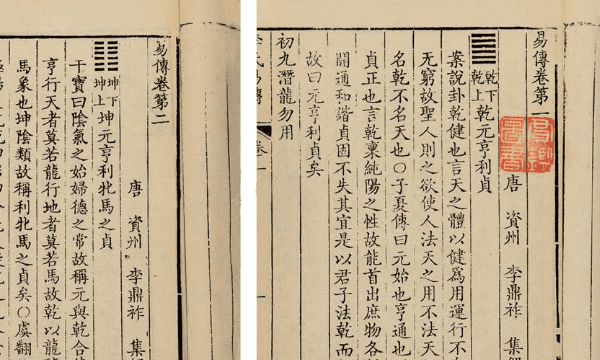 易傳卷第一
唐 資州 李鼎祚 集
乾下乾上 乾元亨利貞
案說卦乾健也言天之體以健爲用運行不
无窮故聖人則之欲使人法天之用不法天
名乾不名天也〇子夏傳曰元始也亨通也
貞正也言乾稟純陽之性故能首出庶物各
開通和諧貞固不失其宜是以君子法乾而
故曰元亨利貞矣
初九潛龍勿用
易傳卷第二
唐 資州 李鼎祚 集
坤下坤上 坤元亨利牝馬之貞
干寶曰陰氣之始婦德之常故稱元與乾合
亨行天者莫若龍行地者莫若馬故乾以龍
馬象也坤陰類故稱利牝馬之貞矣〇虞翻